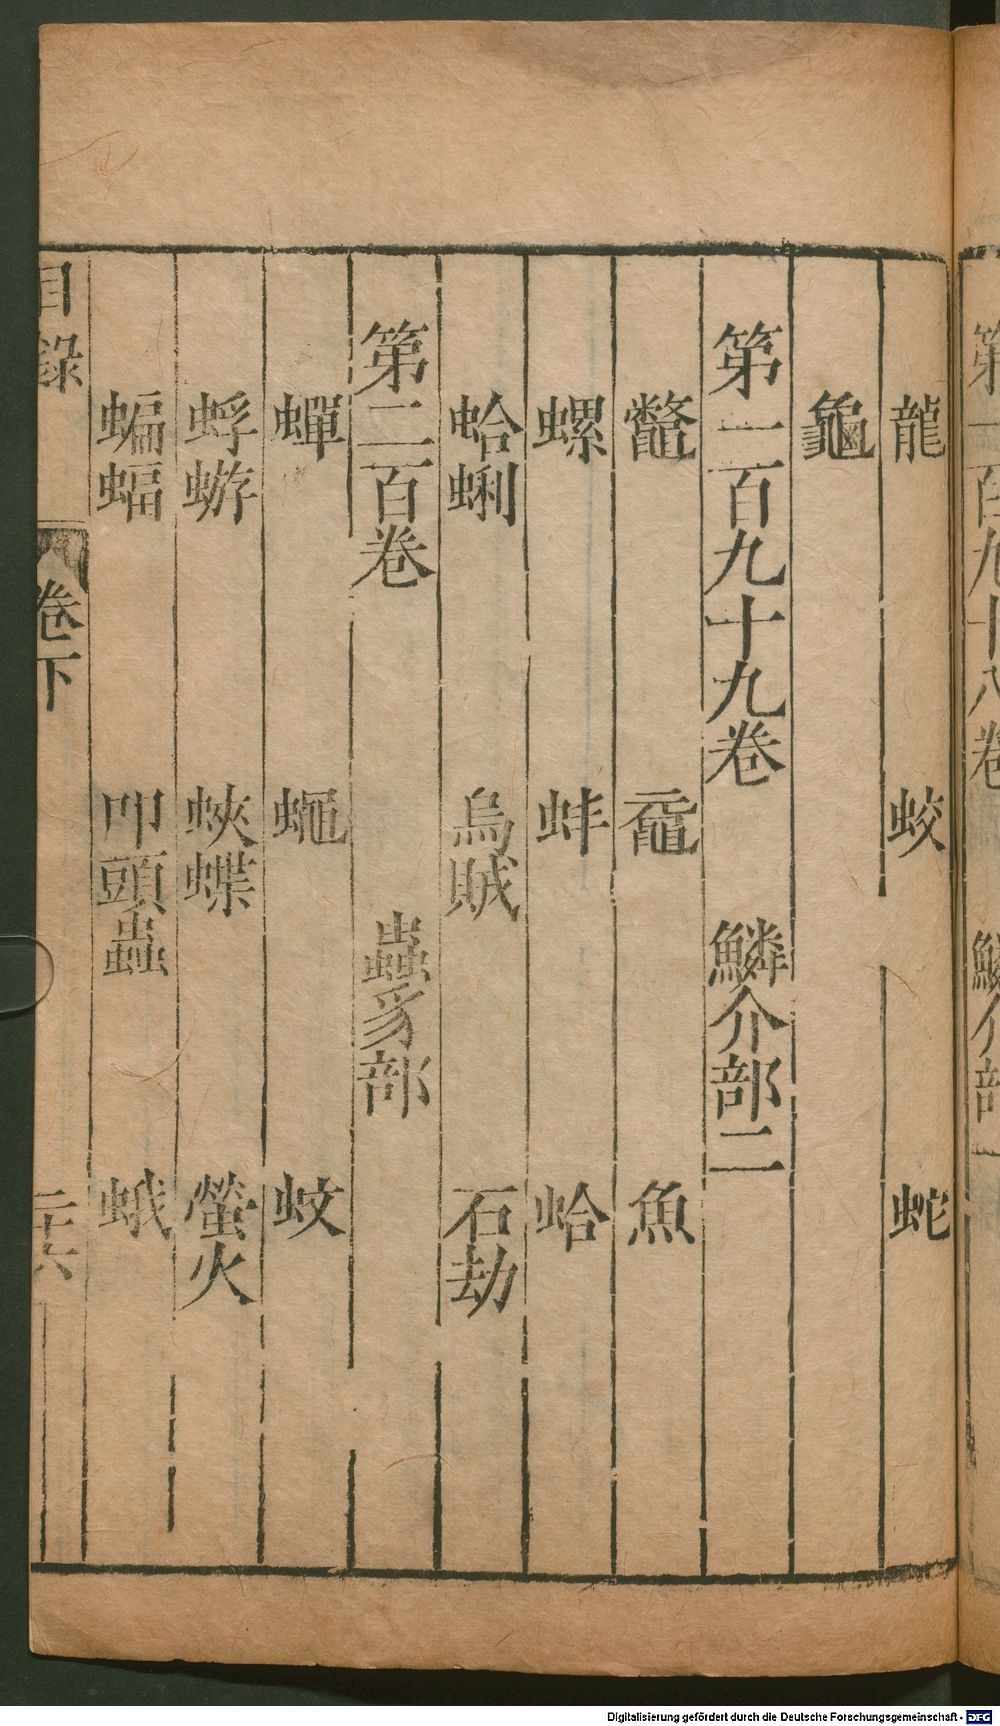 龍　蛟　蛇
龜
第一百九十九卷　鱗介部二
鼈　黿　魚
螺　蚌　蛤
蛤蜊　烏賊　石劫
第二百卷　蟲豸部
蟬　蠅　蚊
蜉蝣　蛺蝶　螢火
蝙蝠　叩頭蟲　蛾
目錄　卷下　二十六
Digitalisierung gefördert durch die Deutsche Forschungsgemeinschaft - DFG